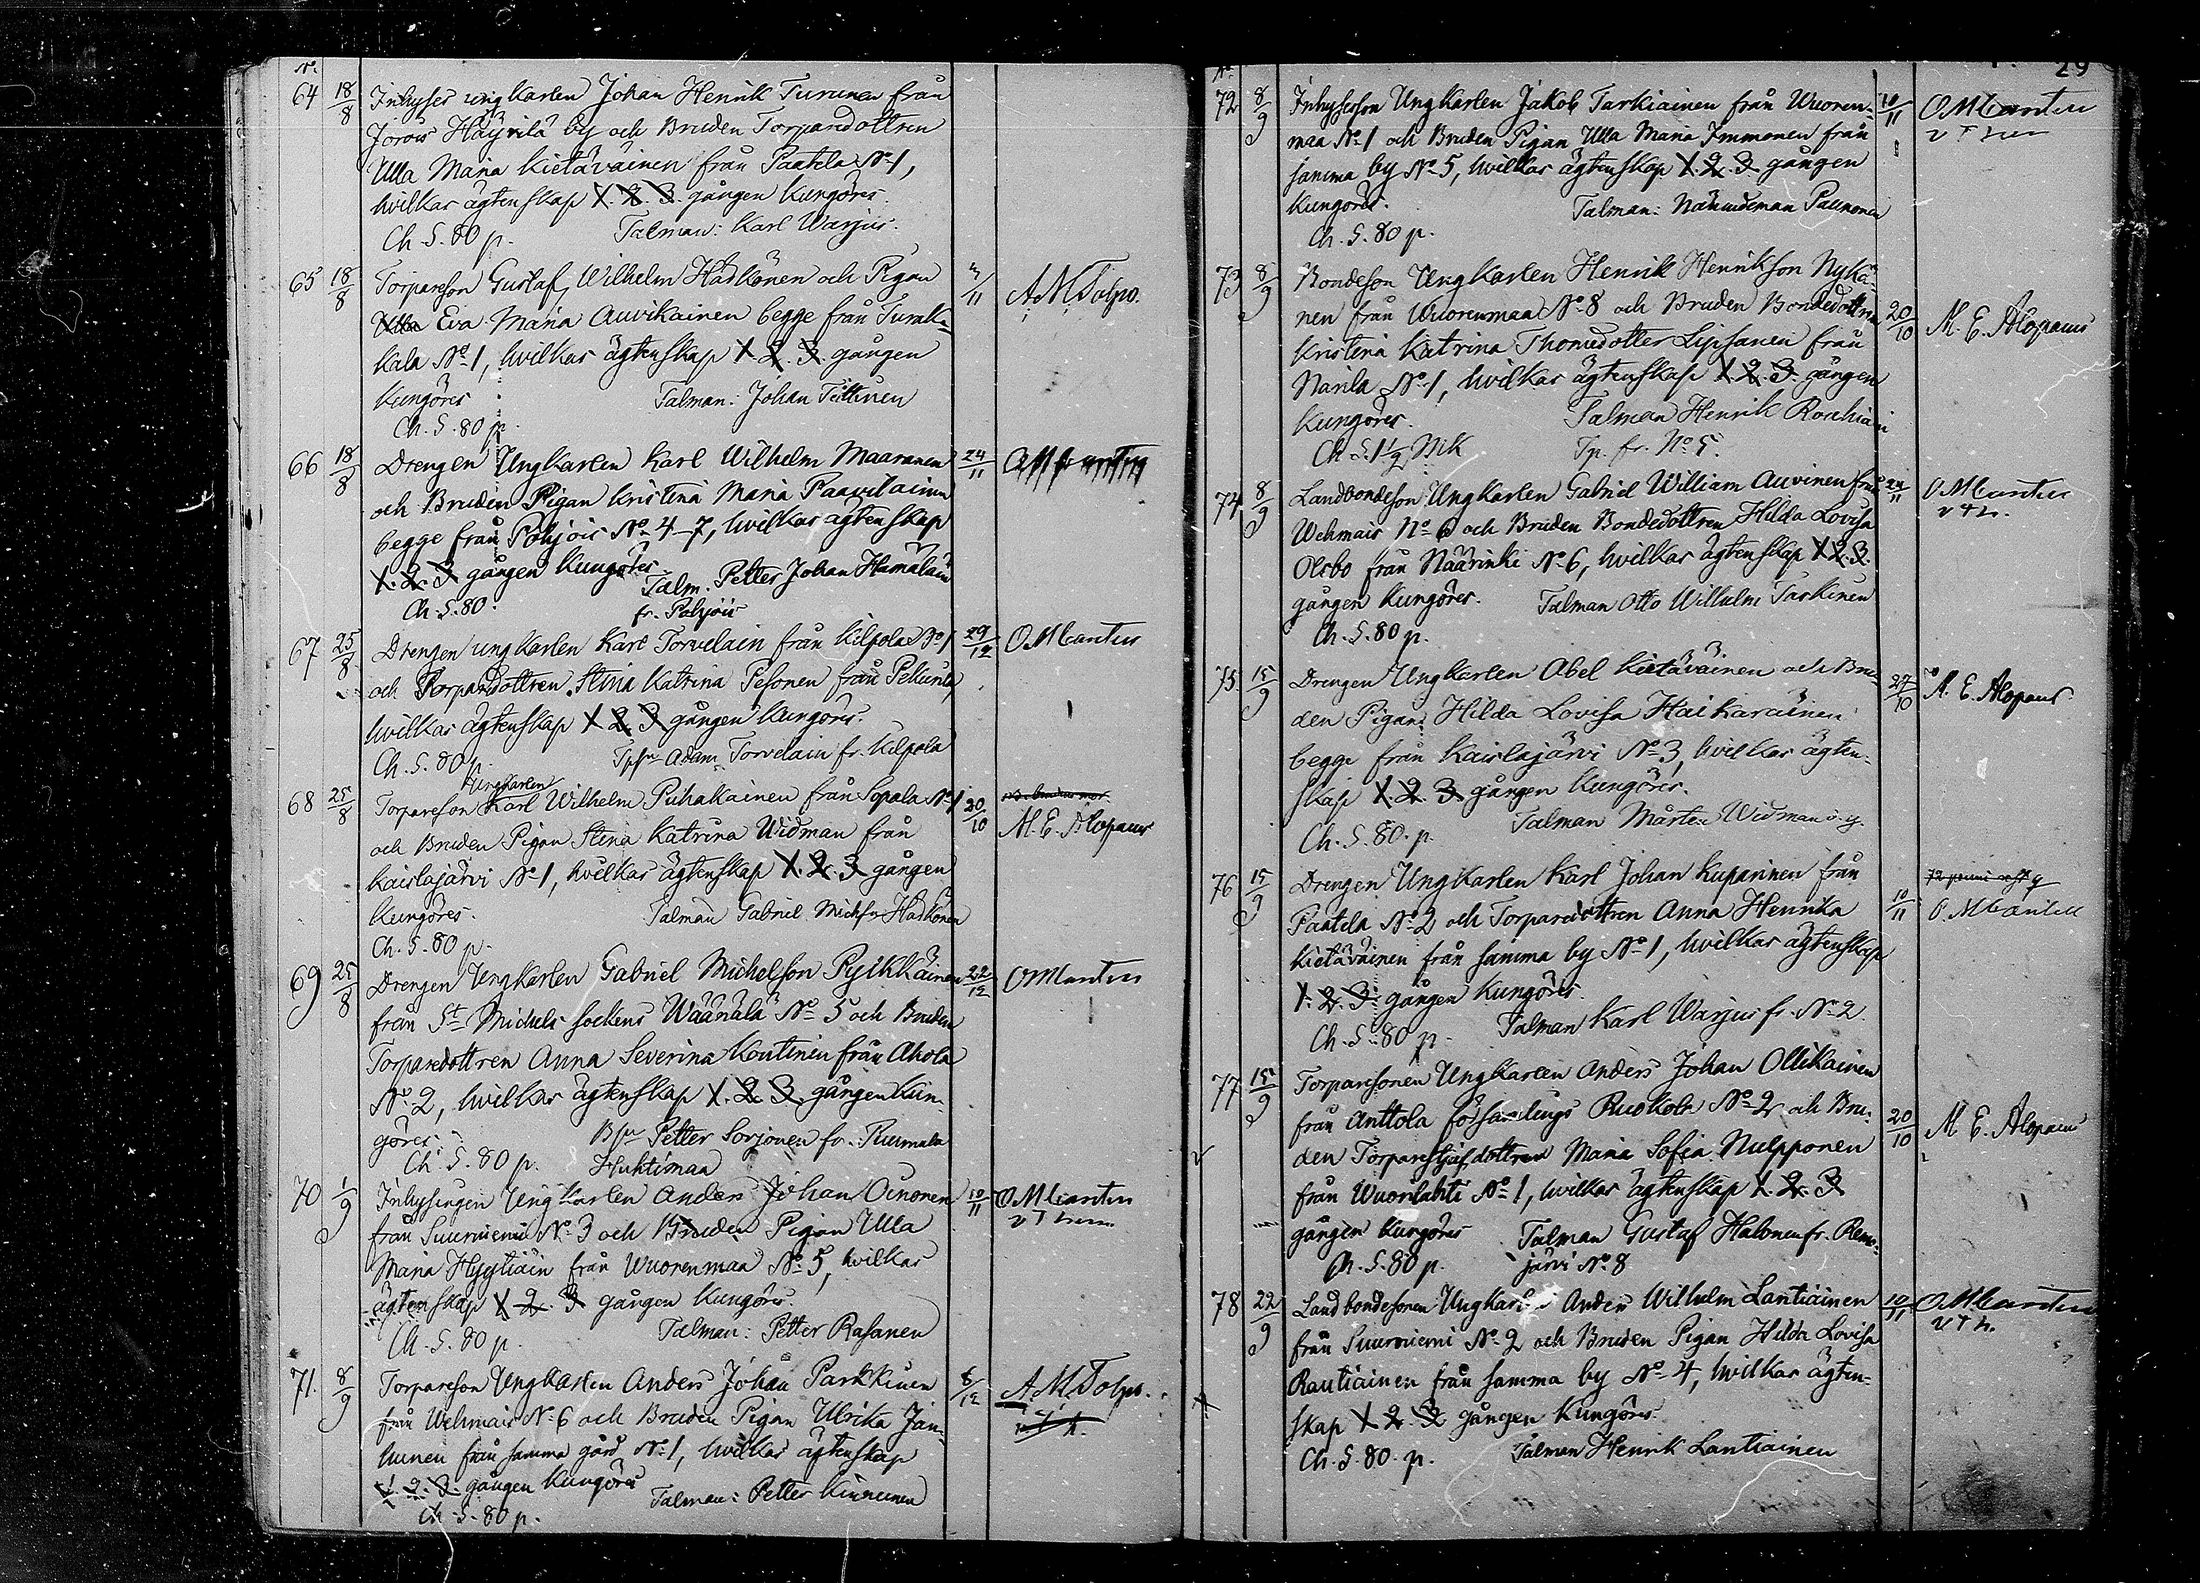 No.
64 18/8 Inhyses ungkarlen Johan Henrik Turunen från
Jorois Häyrilä by och Bruden Torparedottren
Ulla Maria Kietäväinen från Paatela No 1,
hvilkas ägtenskap 1. 2. 3. gången Kungöres.
Ch. S. 80 p. Talman: Karl Warjus.
65 18/8 Torpareson Gustaf Wilhelm Häkkönen och Pigan /11 A. M. Tolpo.
Ulla Eva Maria Auvikainen begge från Turak-
kala No 1, hvilkas ägtenskap 1. 2. 3. gången
Kungöres Talman: Johan Tiittinen
Ch. S. 80 p.
66 18/8 Drengen Ungkarlen Karl Wilhelm Maaranen 24/11
och Bruden Pigan Kristina Maria Paavilainen
begge från Pohjois No 4-7, hvilkas ägtenskap
1. 2. 3. gången Kungöres.
Talm. Petter Johan Hämäläin
Ch. S. 80. fr. Pohjois
67 25/8 Drengen ungkarlen Karl Torvelain från Kilpola No 1 29/12 O M Cantin
och Torparedottren Stina Katrina Pesonen från Pellinlä
hvilkas ägtenskap 1 2 3 gången Kungöres.
Ch. S. 80 p. Tpsn Adam Torvelain fr. Kilpola
Ungkarlen
68 25/8 Torpareson Karl Wilhelm Puhakainen från Sopala No 1 20/10
och Bruden Pigan Stina Katrina Widman från M. E. Alopaeus
Kaislajärvi No 1, hvilkas ägtenskap 1. 2. 3 gången
Kungöres. Talman Gabriel Michson Häkkönen
Ch. S. 80 p.
69 25/8 Drengen Ungkarlen Gabriel Michelson Pylkkäinen 22/12 O M Cantin
från St Michels sockens Wäänälä No 5 och Bruden
Torparedottren Anna Severina Koutinin från Ahola
No 2, hvilkas ägtenskap 1. 2. 3. gången Kun-
göres. Bsn Petter Sorjonen fr. Ruumala
Ch. S. 80 p. Huhtimaa
70 1/9 Inhysingen Ungkarlen Anders Johan Oinonen 10/11 O M Cantin
från Suurniemi No 3 och Bruden Pigan Ulla
Maria Hyytiäin från Wuorenmaa No 5, hvilkas
ägtenskap 1 2. 3 gången Kungöres.
Ch. S. 80 p. Talman: Petter Rasanen
71. 8/9 Torpareson Ungkarlen Anders Johan Parkkinen 8/12 A. M. Tolpo.
från Wehmais No 6 och Bruden Pigan Ulrika Jan-
hunen från samma gård No 1, hvilkas ägtenskap
1. 2. 3. gången Kungöres
Talman: Petter Kinnunen
Ch. S. 80 p.
29
72 8/9 Inhysesson Ungkarlen Jakob Tarkiainen från Wuoren- 10/11 O M Cantin
maa No 1 och Bruden Pigan Ulla Maria Immonen från
samma by No 5, hvilkas ägtenskap 1. 2. 3 gången
Kungöres. Talman: Nämndeman Paunonen
Ch. S. 80 p.
73 8/9 Bondeson Ungkarlen Henrik Henrikson Nykä-
nen från Wuorenmaa No 8 och Bruden Bondedottren 20/10 M. E. Alopaeus
Kristina Katrina Thomedotter Lipsanen från
Narila No 1, hvilkas ägtenskap 1. 2. 3. gången
Kungöres. Talman Henrik Rovchiain
Ch. S. 1 1/2 Mk Tp. fr. No 5.
74 8/9 Landbondeson Ungkarlen Gabriel William Auvinen från 24/11 O M Cantin
Wehmais No 6 och Bruden Bondedottren Hilda Lovisa
Olsbo från Näärinki No 6, hvilkas ägtenskap 1 2. 3.
gången Kungöres. Talman Otto Wilhelm Taskinen
Ch. S. 80 p.
75. 15/9 Drengen Ungkarlen Abel Kietäväinen och Bru- 27/10 M. E. Alopaeus
den Pigan Hilda Lovisa Haikarainen
begge från Kaislajärvi No 3, hvilkas ägten-
skap 1. 2. 3 gången Kungöres.
Talman Mårten Widman
Ch. S. 80 p.
76 15/9 Drengen Ungkarlen Karl Johan Kuparinen från
Paatela No 2 och Torparedottren Anna Henrika 10/11 O. M Cantell
Kietäväinen från samma by No 1, hvilkas ägtenskap
1. 2. 3. gången Kungöres.
Ch. S. 80 p. Talman Karl Warjus fr. No 2
77 15/9 Torparesonen Ungkarlen Anders Johan Ollikainen
från Anttola församlings Ruokola No 2 och Bru- 20/10 M. E. Alopaeus
den Torparestjufdottren Maria Sofia Nulpponen
från Wuorilahti No 1, hvilkas ägtenskap 1. 2. 3
gången Kungöres Talman Gustaf Halonen fr. Remo-
Ch. S. 80 p. järvi No 8
78 22/9 Landbondesonen Ungkarlen Anders Wilhelm Lantiainen 10/11 O M Cantin
från Suurniemi No 2 och Bruden Pigan Hilda Lovisa
Rautiainen från samma by No 4, hvilkas ägten-
skap 1 2. 3 gången Kungöres.
Ch. S. 80. p. Talman Henrik Lantiainen